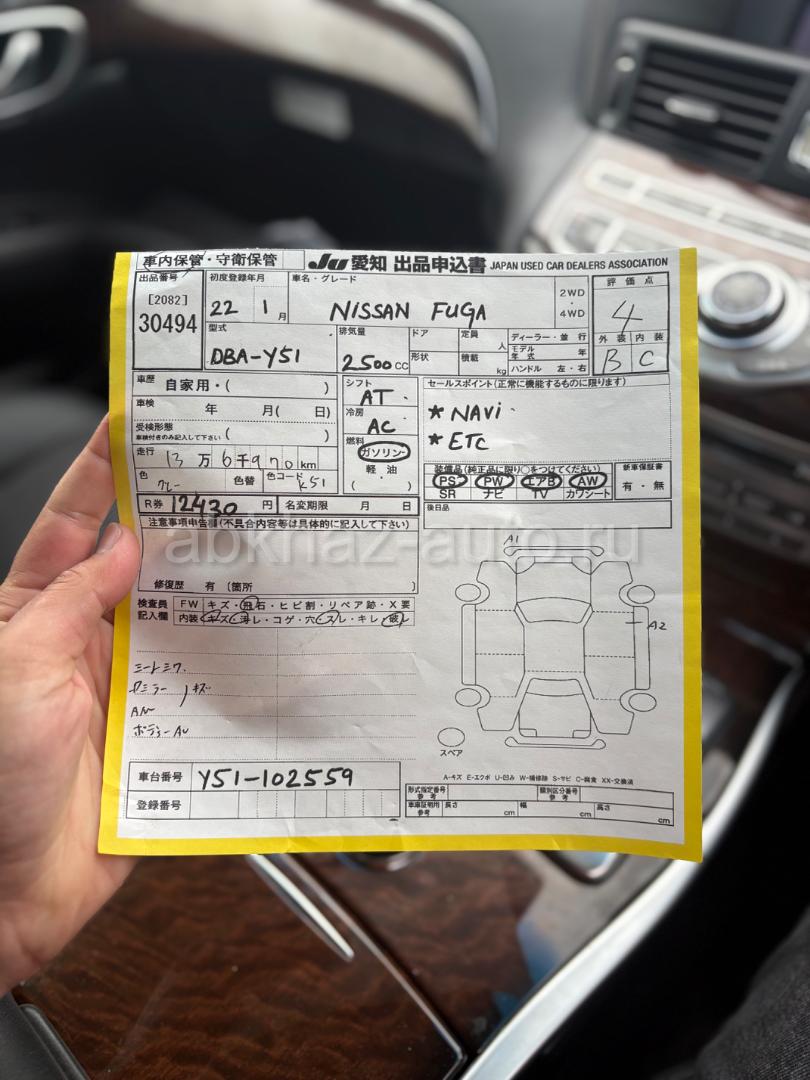 車内保管・守衛保管 JU 愛知 出品申込書 JAPAN USED CAR DEALERS ASSOCIATION
出品番号 初度登録年月 車名・グレード 評価点
[2082] 22 1月 NISSAN FUGA 2WD 4
30494 4WD
型式 排気量 ドア 定員 人 ディーラー・並行 外装 内装
DBA-Y51 2500CC 形状 積載 kg モデル年式 年 B C
ハンドル 左・右
車歴 自家用・( ) シフト セールスポイント(正常に機能するものに限ります)
AT
車検 年 月( 日) 冷房 * NAVi
AC * ETC
受検形態 ( ) 燃料
車検付きのみ記入して下さい ガソリン
走行 13万6千970km 軽油 装備品(純正品に限り○をつけてください) 新車保証書
色 グレー 色替 色コード K51 ( ) PS PW エアB AW 有・無
SR ナビ TV カワシート
R券 12430円 名変期限 月 日 後日品
注意事項申告欄(不具合内容等は具体的に記入して下さい)
abkhaz-auto.ru
A1
修復歴 有 (箇所
検査員 FW キズ・飛石・ヒビ割・リペア跡・X要
記入欄 内装
A2
スペア
車台番号 Y51-102559
A-キズ E-エクボ U-凹み W-補修跡 S-サビ C-腐食 XX-交換済
登録番号 形式指定番号 参考 類別区分番号 参考
車庫証明用 参考 長さ cm 幅 cm 高さ cm